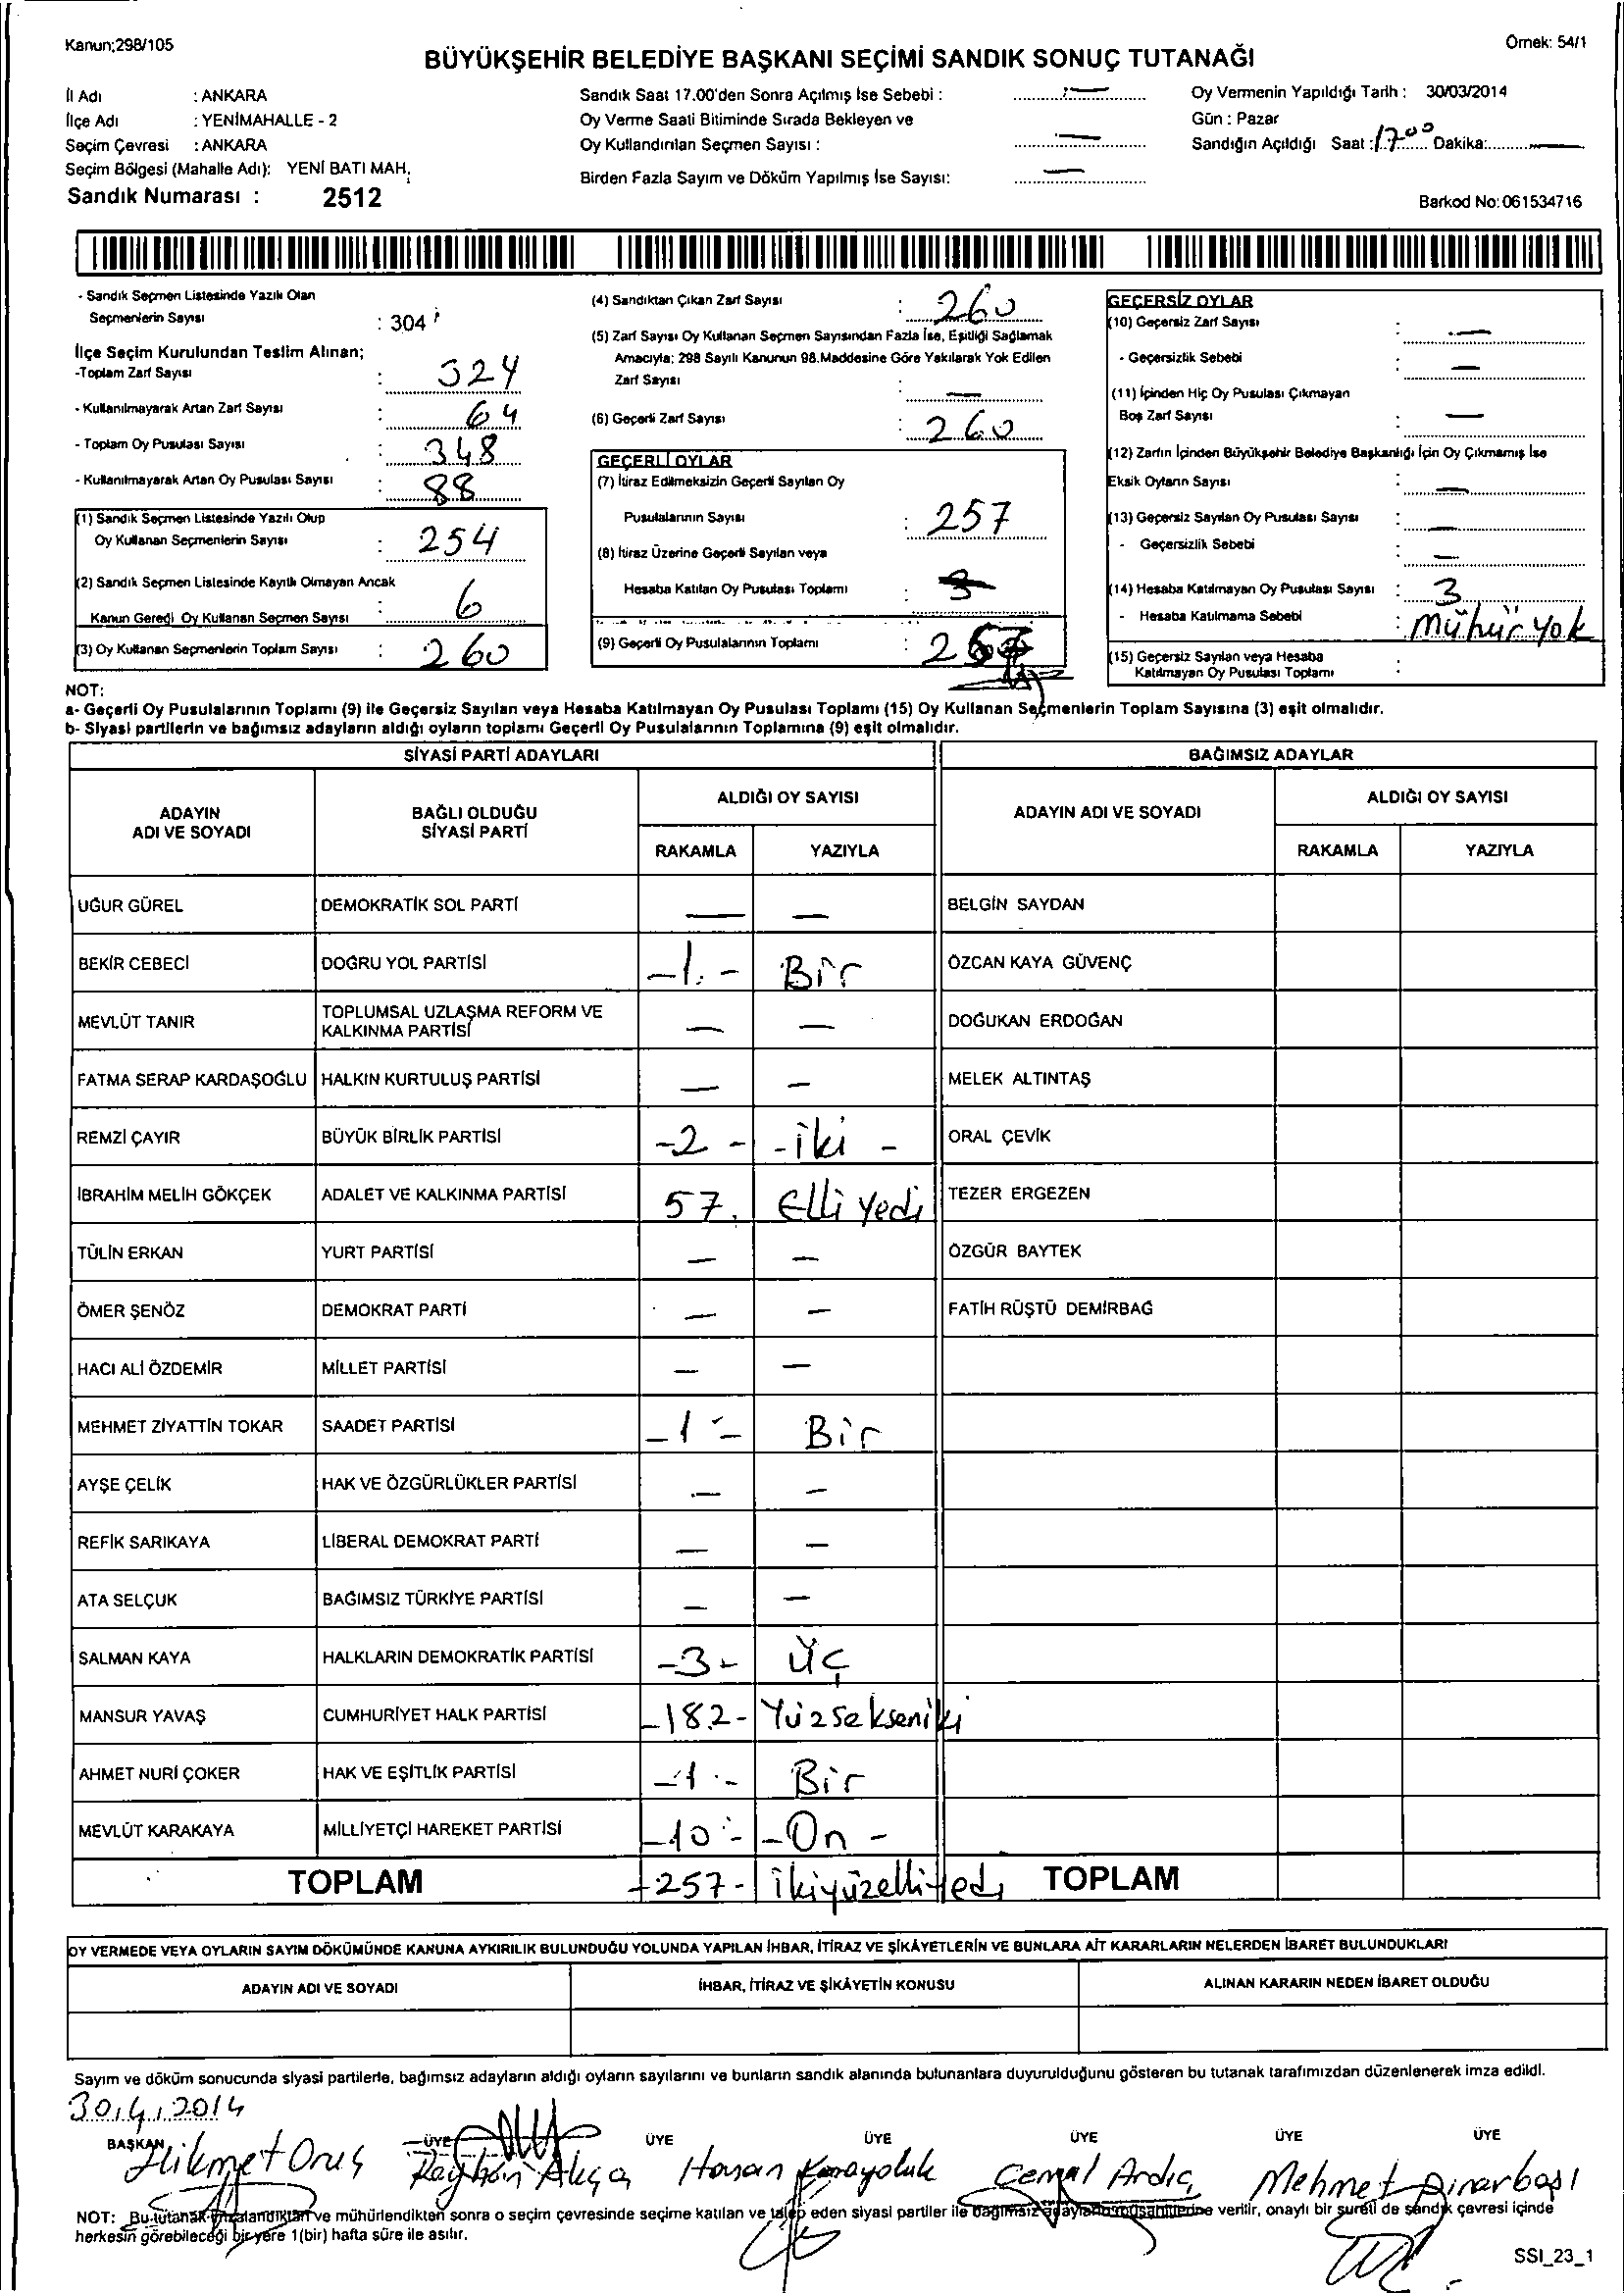 Kanun;298/105
Örnek: 54/1
BÜYÜKŞEHİR BELEDİYE BAŞKANI SEÇİMİ SANDIK SONUÇ TUTANAĞI
İl Adı : ANKARA
İlçe Adı : YENİMAHALLE - 2
Seçim Çevresi : ANKARA
Seçim Bölgesi (Mahalle Adı): YENİ BATI MAH.
Sandık Numarası : 2512
Sandık Saat 17.00'den Sonra Açılmış İse Sebebi : —
Oy Verme Saati Bitiminde Sırada Bekleyen ve
Oy Kullandırılan Seçmen Sayısı : —
Birden Fazla Sayım ve Döküm Yapılmış İse Sayısı: —
Oy Vermenin Yapıldığı Tarih : 30/03/2014
Gün : Pazar
Sandığın Açıldığı Saat : 17.00 Dakika: —
Barkod No:061534716
- Sandık Seçmen Listesinde Yazılı Olan
Seçmenlerin Sayısı : 304
İlçe Seçim Kurulundan Teslim Alınan;
-Toplam Zarf Sayısı : 324
- Kullanılmayarak Artan Zarf Sayısı : 64
- Toplam Oy Pusulası Sayısı : 348
- Kullanılmayarak Artan Oy Pusulası Sayısı : 88
(1) Sandık Seçmen Listesinde Yazılı Olup
Oy Kullanan Seçmenlerin Sayısı : 254
(2) Sandık Seçmen Listesinde Kayıtlı Olmayan Ancak
Kanun Gereği Oy Kullanan Seçmen Sayısı : 6
(3) Oy Kullanan Seçmenlerin Toplam Sayısı : 260
(4) Sandıktan Çıkan Zarf Sayısı : 260
(5) Zarf Sayısı Oy Kullanan Seçmen Sayısından Fazla İse, Eşitliği Sağlamak
Amacıyla; 298 Sayılı Kanunun 98.Maddesine Göre Yakılarak Yok Edilen
Zarf Sayısı : —
(6) Geçerli Zarf Sayısı : 260
GEÇERLİ OYLAR
(7) İtiraz Edilmeksizin Geçerli Sayılan Oy
Pusulalarının Sayısı : 257
(8) İtiraz Üzerine Geçerli Sayılan veya
Hesaba Katılan Oy Pusulası Toplamı : 3
(9) Geçerli Oy Pusulalarının Toplamı :
GEÇERSİZ OYLAR
(10) Geçersiz Zarf Sayısı : —
- Geçersizlik Sebebi : —
(11) İçinden Hiç Oy Pusulası Çıkmayan
Boş Zarf Sayısı : —
(12) Zarfın İçinden Büyükşehir Belediye Başkanlığı İçin Oy Çıkmamış İse
Eksik Oyların Sayısı : —
(13) Geçersiz Sayılan Oy Pusulası Sayısı : —
- Geçersizlik Sebebi : —
(14) Hesaba Katılmayan Oy Pusulası Sayısı : 3
- Hesaba Katılmama Sebebi : Mühür yok
(15) Geçersiz Sayılan veya Hesaba
Katılmayan Oy Pusulası Toplamı :
NOT:
a- Geçerli Oy Pusulalarının Toplamı (9) ile Geçersiz Sayılan veya Hesaba Katılmayan Oy Pusulası Toplamı (15) Oy Kullanan Seçmenlerin Toplam Sayısına (3) eşit olmalıdır.
b- Siyasi partilerin ve bağımsız adayların aldığı oyların toplamı Geçerli Oy Pusulalarının Toplamına (9) eşit olmalıdır.
SİYASİ PARTİ ADAYLARI BAĞIMSIZ ADAYLAR
ADAYIN ADI VE SOYADI BAĞLI OLDUĞU SİYASİ PARTİ ALDIĞI OY SAYISI ADAYIN ADI VE SOYADI ALDIĞI OY SAYISI
RAKAMLA YAZIYLA RAKAMLA YAZIYLA
UĞUR GÜREL DEMOKRATİK SOL PARTİ — — BELGİN SAYDAN
BEKİR CEBECİ DOĞRU YOL PARTİSİ -1.- Bir ÖZCAN KAYA GÜVENÇ
MEVLÜT TANIR TOPLUMSAL UZLAŞMA REFORM VE KALKINMA PARTİSİ — — DOĞUKAN ERDOĞAN
FATMA SERAP KARDAŞOĞLU HALKIN KURTULUŞ PARTİSİ — — MELEK ALTINTAŞ
REMZİ ÇAYIR BÜYÜK BİRLİK PARTİSİ -2- -iki- ORAL ÇEVİK
İBRAHİM MELİH GÖKÇEK ADALET VE KALKINMA PARTİSİ 57. Elli yedi TEZER ERGEZEN
TÜLİN ERKAN YURT PARTİSİ — — ÖZGÜR BAYTEK
ÖMER ŞENÖZ DEMOKRAT PARTİ — — FATİH RÜŞTÜ DEMİRBAĞ
HACI ALİ ÖZDEMİR MİLLET PARTİSİ — —
MEHMET ZİYATTİN TOKAR SAADET PARTİSİ -1- Bir
AYŞE ÇELİK HAK VE ÖZGÜRLÜKLER PARTİSİ — —
REFİK SARIKAYA LİBERAL DEMOKRAT PARTİ — —
ATA SELÇUK BAĞIMSIZ TÜRKİYE PARTİSİ — —
SALMAN KAYA HALKLARIN DEMOKRATİK PARTİSİ -3- Üç
MANSUR YAVAŞ CUMHURİYET HALK PARTİSİ -182- Yüzsekseniki
AHMET NURİ ÇOKER HAK VE EŞİTLİK PARTİSİ -1- Bir
MEVLÜT KARAKAYA MİLLİYETÇİ HAREKET PARTİSİ -10- -On-
TOPLAM -257- ikiyüzelliyedi TOPLAM
OY VERMEDE VEYA OYLARIN SAYIM DÖKÜMÜNDE KANUNA AYKIRILIK BULUNDUĞU YOLUNDA YAPILAN İHBAR, İTİRAZ VE ŞİKÂYETLERİN VE BUNLARA AİT KARARLARIN NELERDEN İBARET BULUNDUKLARI
ADAYIN ADI VE SOYADI İHBAR, İTİRAZ VE ŞİKÂYETİN KONUSU ALINAN KARARIN NEDEN İBARET OLDUĞU
Sayım ve döküm sonucunda siyasi partilerle, bağımsız adayların aldığı oyların sayılarını ve bunların sandık alanında bulunanlara duyurulduğunu gösteren bu tutanak tarafımızdan düzenlenerek imza edildi.
30/4/2014
BAŞKAN ÜYE ÜYE ÜYE ÜYE ÜYE ÜYE
Hikmet Oruç Reyhan Akça Hasan Karayoluk Cemal Ardıç Mehmet Pınarbaşı
NOT: Bu tutanak imzalandıktan ve mühürlendikten sonra o seçim çevresinde seçime katılan ve talep eden siyasi partiler ile bağımsız adayların müşahitlerine verilir, onaylı bir sureti de sandık çevresi içinde
herkesin görebileceği bir yere 1(bir) hafta süre ile asılır.
SSI_23_1